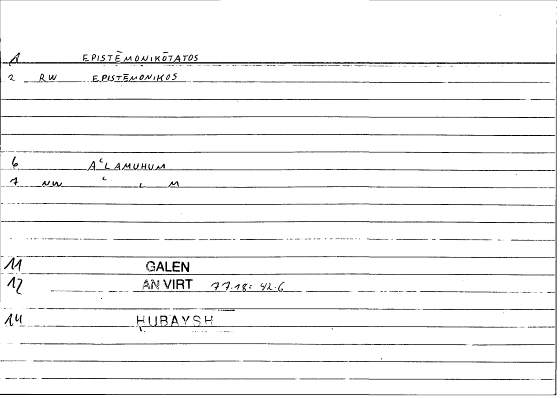 1 EPISTĒMONIKŌTATOS
2 RW EPISTĒMONIKOS
6 AʿLAMUHUM
7 NW ʿ L M
11 GALEN
12 AN VIRT 77.18: 42.6
14 HUBAYSH